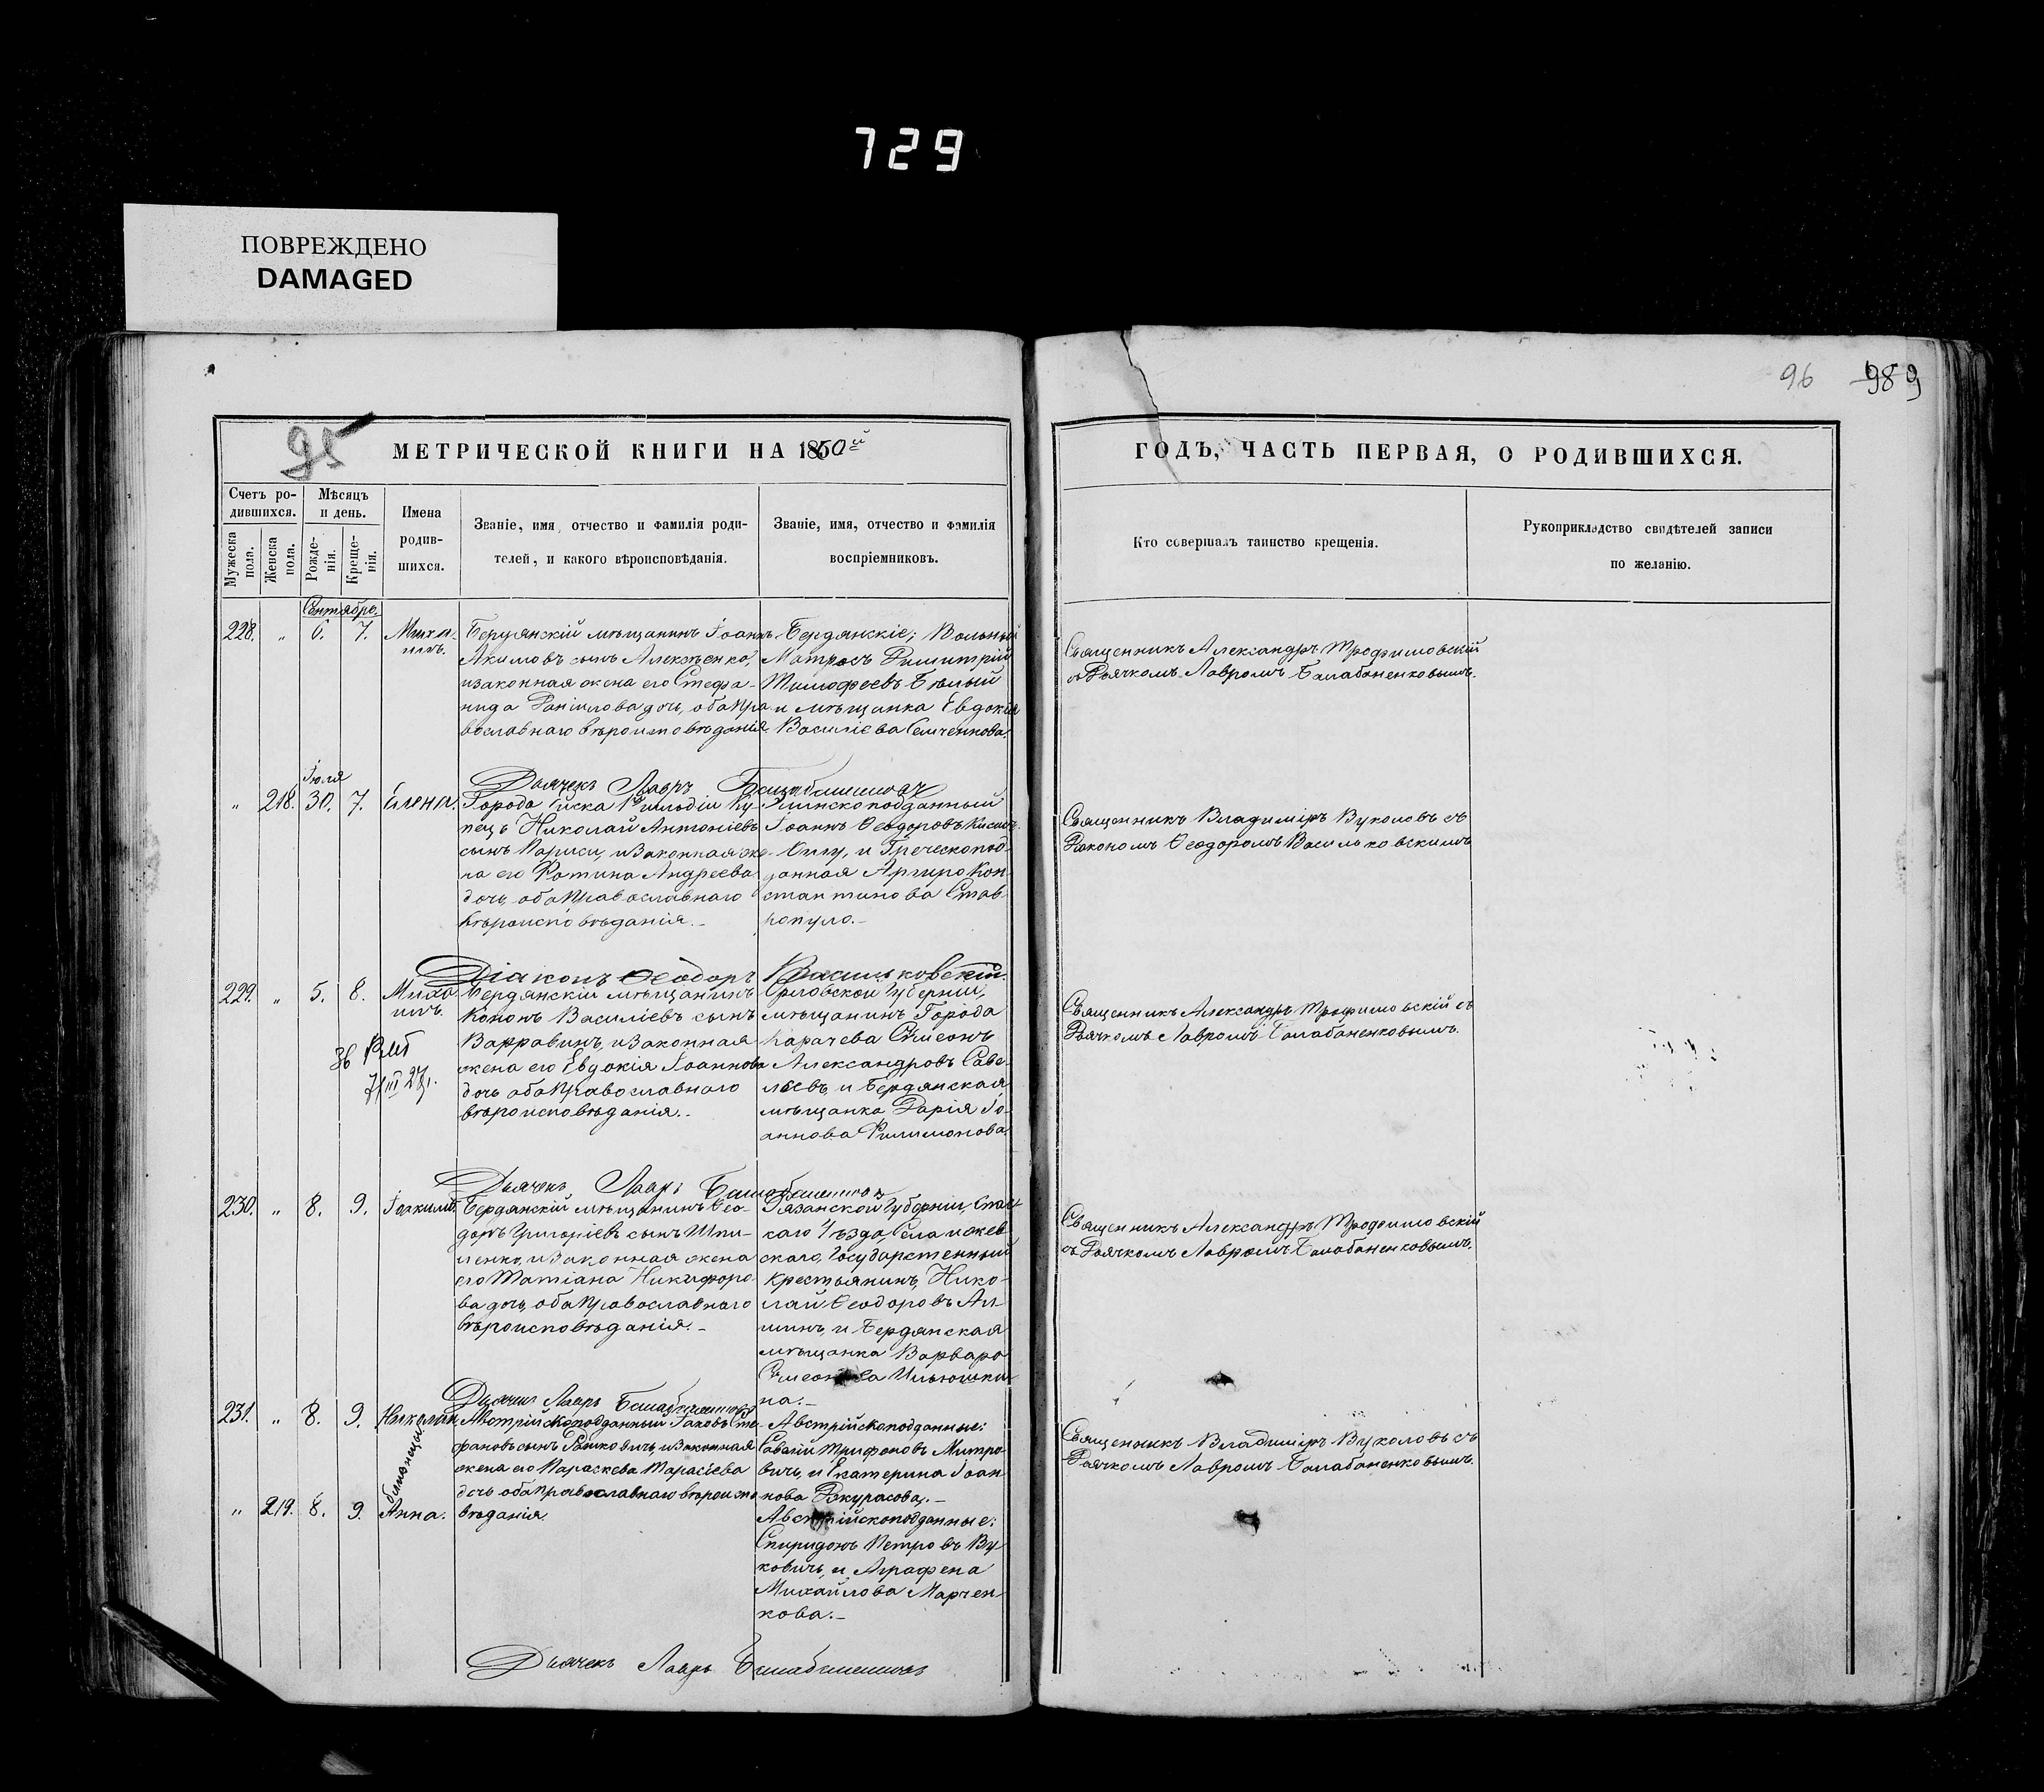 729
ПОВРЕЖДЕНО
DAMAGED
96 989
95
МЕТРИЧЕСКОЙ КНИГИ НА 1850й
ГОДЪ, ЧАСТЬ ПЕРВАЯ, О РОДИВШИХСЯ.
Счетъ ро-
дившихся.
Мужеска пола.
Женска пола.
Мѣсяцъ
и день.
Рожде-
нія.
Креще-
нія.
Имена
родив-
шихся.
Званіе, имя, отчество и фамилія роди-
телей, и какого вѣроисповѣданія.
Званіе, имя, отчество и фамилія
воспріемниковъ.
Кто совершалъ таинство крещенія.
Рукоприкладство свидѣтелей записи
по желанію.
Сентябрь.
228. „ 6. 7. Миха-
илъ.
Бердянскій мѣщанинъ Іоаннъ
Акимовъ сынъ Алексѣенко,
и законная жена его Стефа-
нида Даніилова дочь, оба пра-
вославнаго вѣроисповѣданія.
Бердянскіе; Вольный
Матросъ Димитрій
Тимофеевъ Бѣлый
и мѣщанка Евдокія
Василіева Семченкова.
Священникъ Александръ Трофимовскій
съ Дьячкомъ Лавромъ Балабаненковымъ.
Дьячекъ Лавръ
Іюля
„ 218. 30. 7. Елена.
Города Ейска 1й гильдіи Ку-
пецъ Николай Антоніевъ
сынъ Париси, и законная же-
на его Фотина Андреева
дочь, оба православнаго
вѣроисповѣданія.-
подданный
Іоаннъ Ѳеодоровъ
и Греческопод-
данная Аргиро Кон-
стантинова Став-
ропуло.-
Священникъ Владиміръ Вуколовъ съ
Діакономъ Ѳеодоромъ Васильковскимъ
Діаконъ Ѳеодоръ Васильковскій.
229. „ 5. 8. Миха-
илъ.
Бердянскій мѣщанинъ
Кононъ Василіевъ сынъ
Варравинъ, и законная
жена его Евдокія Іоаннова
дочь, оба православнаго
вѣроисповѣданія.-
Орловской Губерніи,
мѣщанинъ Города
Карачева Симеонъ
Александровъ Саве-
льевъ, и Бердянская
мѣщанка Дарія Іо-
аннова Филимонова.
Священникъ Александръ Трофимовскій съ
Дьячкомъ Лавромъ Балабаненковымъ.
Дьячекъ Лавръ
230. „ 8. 9. Іоакимъ.
Бердянскій мѣщанинъ Ѳео-
доръ Григоріевъ сынъ Шпи-
ленко, и законная жена
его Татіана Никифоро-
ва дочь, оба православнаго
вѣроисповѣданія.-
Рязанской Губерніи, Спас-
каго Уѣзда, Села
Государственный
Крестьянинъ, Нико-
лай Ѳеодоровъ Ал-
и Бердянская
мѣщанка Варвара
Симеонова Ильюшки-
на.-
Священникъ Александръ Трофимовскій
съ Дьячкомъ Лавромъ Балабаненковымъ.
Дьячекъ Лавръ
231. „ 8. 9. Николай
близнецы.
„ 219. 8. 9. Анна.
Австрійскоподданный Іаковъ Сте-
фановъ сынъ Рашковичъ, и законная
жена его Параскева Тарасіева
дочь, оба православнаго вѣроиспо-
вѣданія.
Австрійскоподданные:
Савелій Трифоновъ Митро-
вичъ, и Екатерина Іоан-
нова Джурасова.-
Австрійскоподданные:
Спиридонъ Петровъ Ву-
ковичъ, и Аграфена
Михайлова Марчен-
кова.-
Священникъ Владиміръ Вуколовъ съ
Дьячкомъ Лавромъ Балабаненковымъ.
Дьячекъ Лавръ